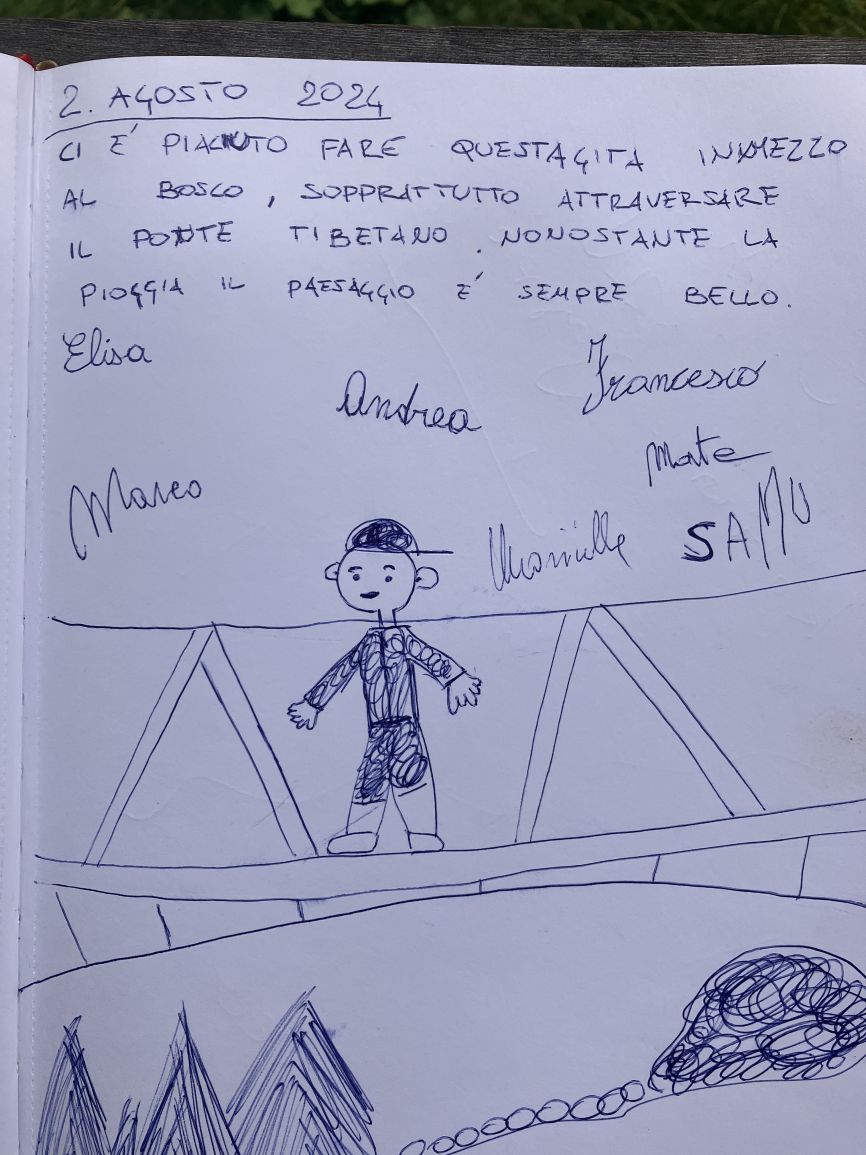 2. AGOSTO 2024
CI E' PIACIUTO FARE QUESTA GITA IN MEZZO
AL BOSCO, SOPPRATTUTTO ATTRAVERSARE
IL PONTE TIBETANO. NONOSTANTE LA
PIOGGIA IL PAESAGGIO E' SEMPRE BELLO.
Elisa
Andrea
Francesco
Mate
Marco
SAMU